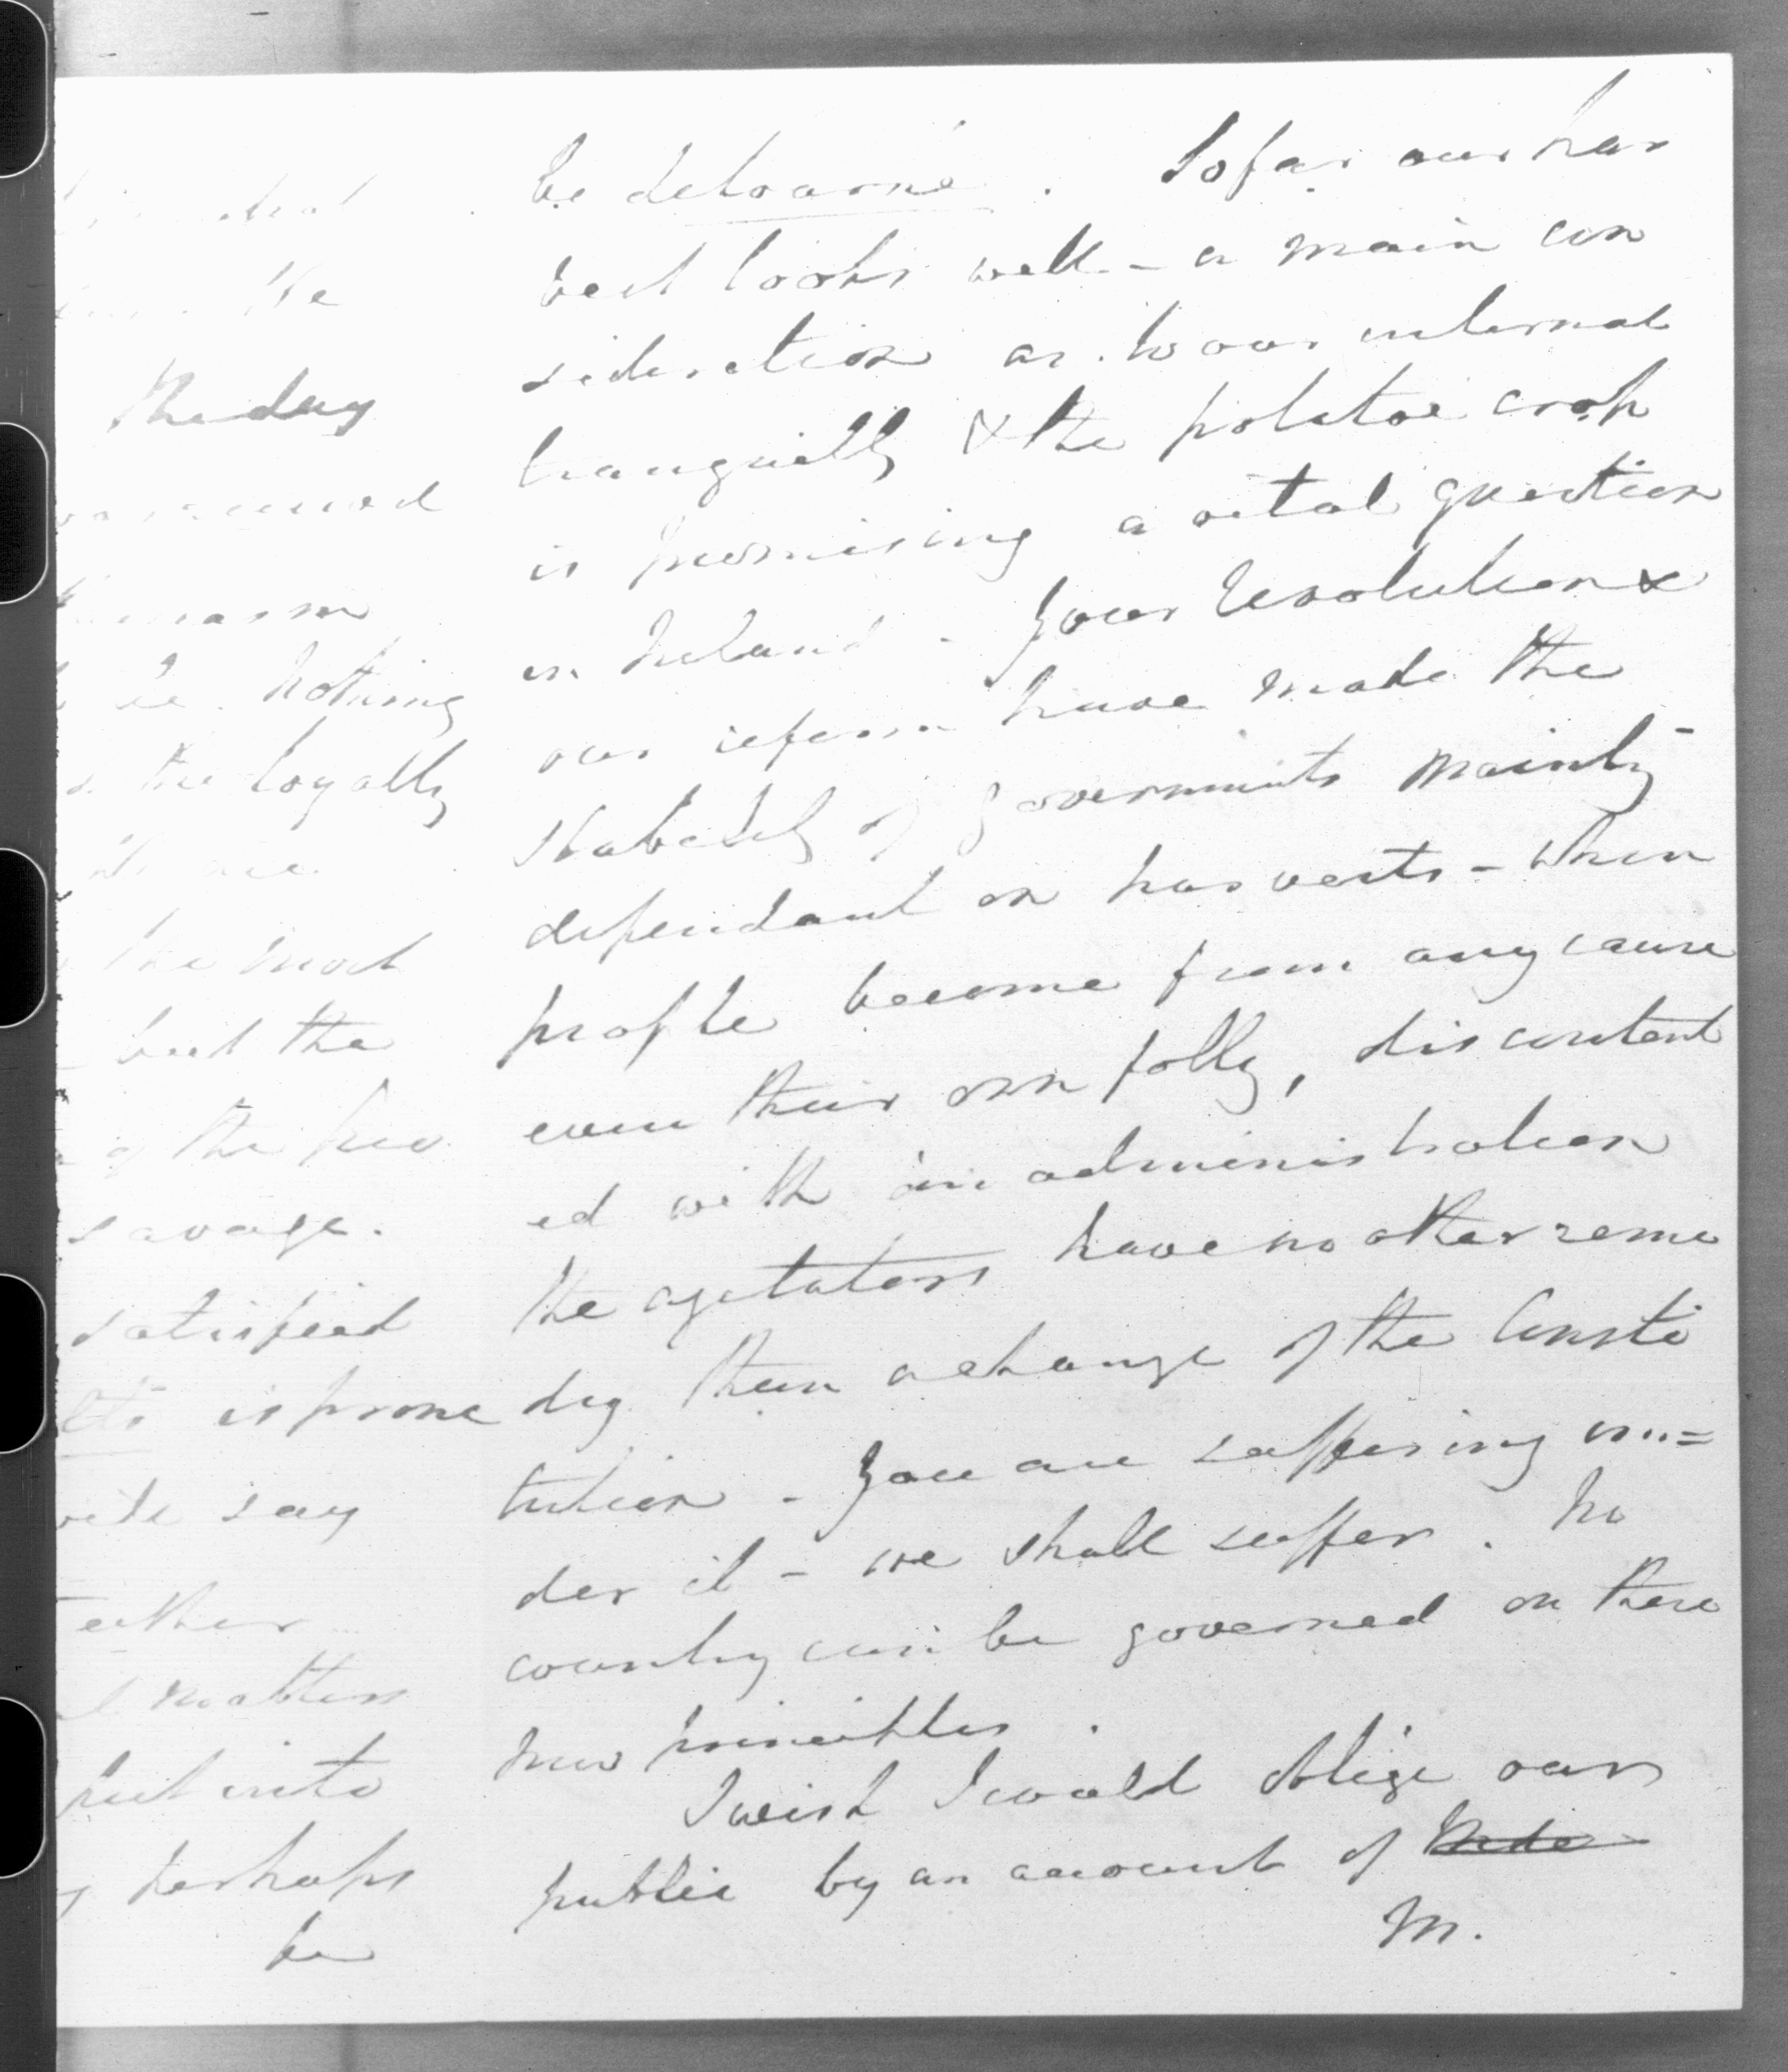 the
the day
nothing
the loyalty
the most
but the
of the few
savage.
satisfied
is prone
say
either
matters
put into
perhaps
be
be detourné. So far our har
vest looks well - a main con
sideration as to our internal
tranquillity & the potatoe crop
is promising a vital question
in Ireland - Your Revolution &
our reform have made the
stability of governments mainly
dependant on harvests - when
people become from any cause
even their own folly, discontent
ed with an administration
the agitators have no other reme
dy than a change of the Consti
tution - You are suffering un=
der it - we shall suffer. No
country can be governed on these
new principles.
I wish I could oblige our
public by an account of
M.